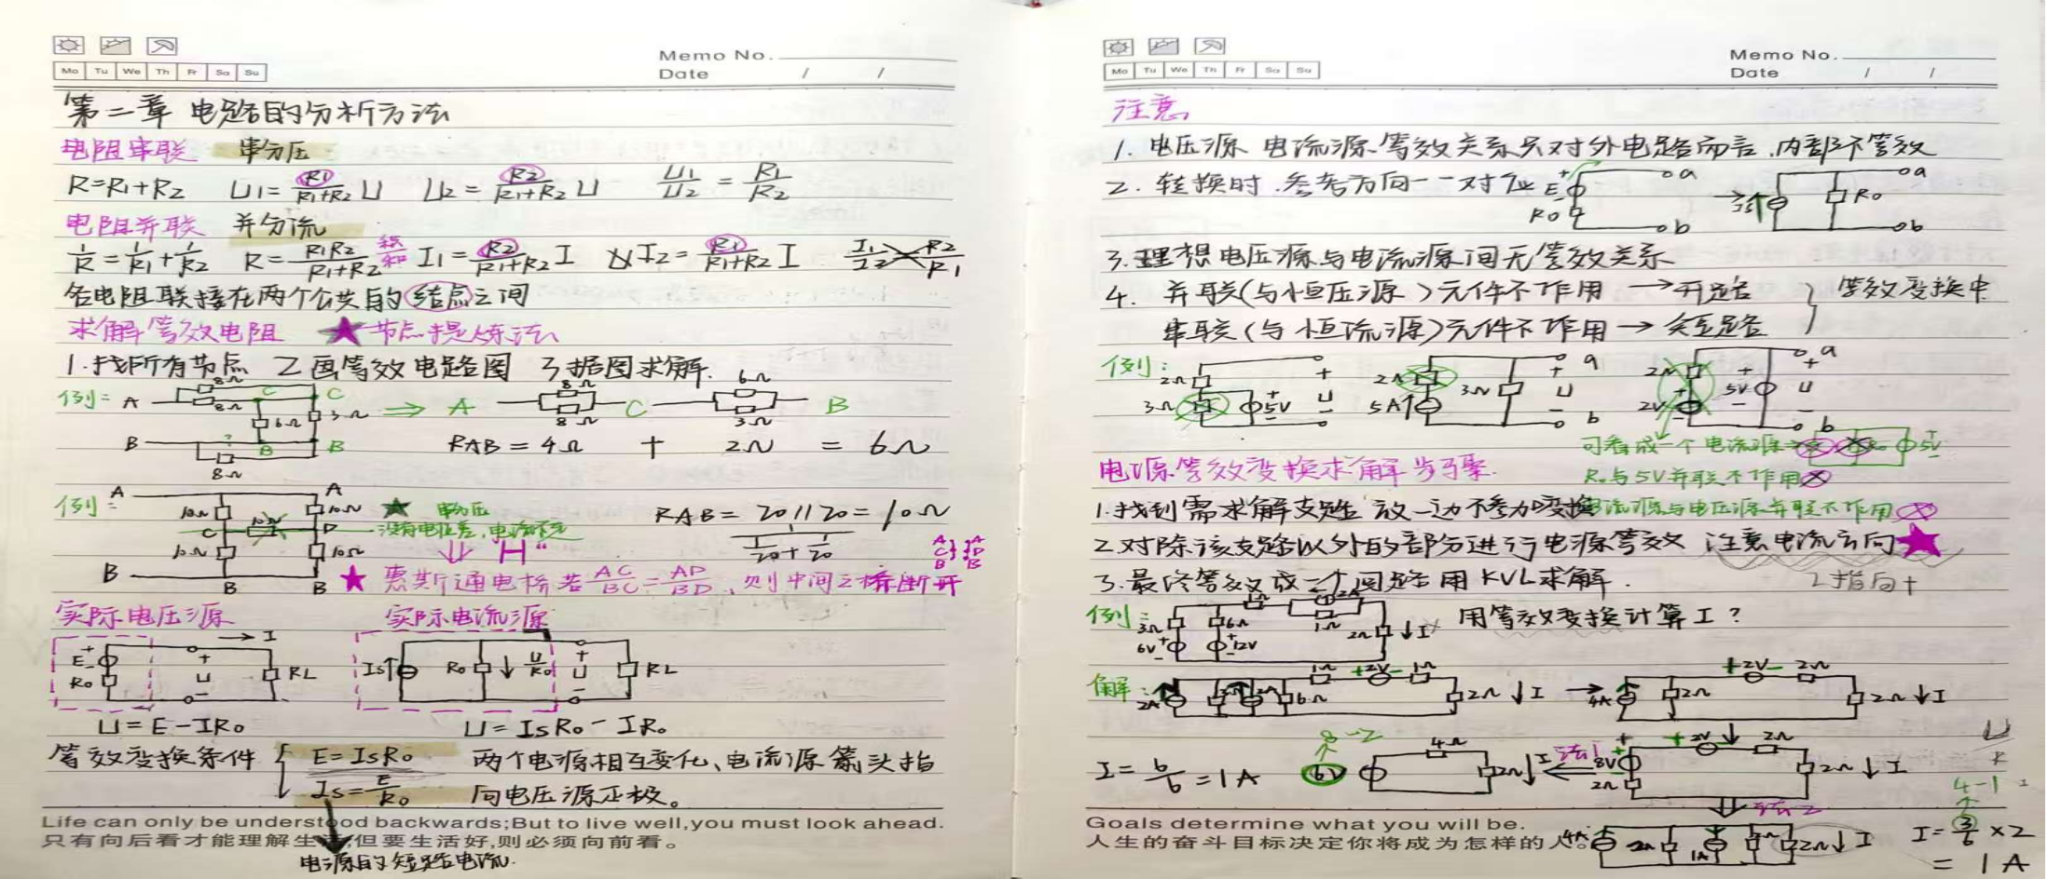 Memo No.
Mo Tu We Th Fr Sa Su
Date / /
第二章 电路的分析方法
电阻串联 串分压
R=R1+R2 U1=R1/(R1+R2) U U2=R2/(R1+R2) U U1/U2=R1/R2
电阻并联 并分流
1/R=1/R1+1/R2 R=R1R2/(R1+R2) 积/和 I1=R2/(R1+R2) I I2=R1/(R1+R2) I I1/I2 R2/R1
各电阻联接在两个公共的(结点)之间
求解等效电阻 ★节点提炼法
1.找所有节点 2画等效电路图 3据图求解.
例: A 8Ω 8Ω C C 6Ω 3Ω ⇒ A 8Ω 8Ω C 6Ω 3Ω B
B B B 8Ω RAB=4Ω + 2Ω = 6Ω
例: A A
10Ω 10Ω ★ 串分压 RAB=20//20=10Ω
C 10Ω D 没有电位差,电流不走
10Ω 10Ω "H" 1/(1/20+1/20)
B B B ★ 惠斯通电桥若AC/BC=AD/BD,则中间之桥断开
实际电压源 实际电流源
I
E R0 U RL Is R0 U/R0 U RL
U=E-IR0 U=IsR0-IR0
等效变换条件 { E=IsR0 两个电源相互变化、电流源箭头指
Is=E/R0 向电压源正极。
Life can only be understood backwards;But to live well,you must look ahead.
只有向后看才能理解生活,但要生活好,则必须向前看。
电源的短路电流.
Memo No.
Mo Tu We Th Fr Sa Su
Date / /
注意
1. 电压源 电流源等效关系只对外电路而言,内部不等效
2. 转换时.参考方向一一对应 E R0 a b Is R0 a b
3.理想电压源与电流源间无等效关系
4. 并联(与恒压源)元件不作用 →开路 } 等效变换中
串联(与恒流源)元件不作用 → 短路
例: 2Ω 3Ω 5V U 2Ω 5A 3Ω a U b 2Ω 2V 5V a U b
可看成一个电流源→ 5V
电源等效变换求解步骤. R0与5V并联不作用
1.找到需求解支路 放一边不参加变换 电流源与电压源并联不作用
2.对除该支路以外的部分进行电源等效 注意电流方向★
3.最终等效成一个回路用KVL求解. 指向+
例: 3Ω 6Ω 6V 12V 1Ω 2A 1Ω 2Ω I 用等效变换计算I?
解: 2A 6Ω 1Ω +2V- 1Ω 2Ω I → 4A 2Ω +2V- 2Ω 2Ω I
I=6/6=1A 8-2 6V 4Ω 2Ω I 法1 8V 2Ω 2V 2Ω 2Ω I
4-1
法2
Goals determine what you will be.
人生的奋斗目标决定你将成为怎样的人。
4A 2Ω 1A 2Ω 2Ω I I=3/6×2
=1A